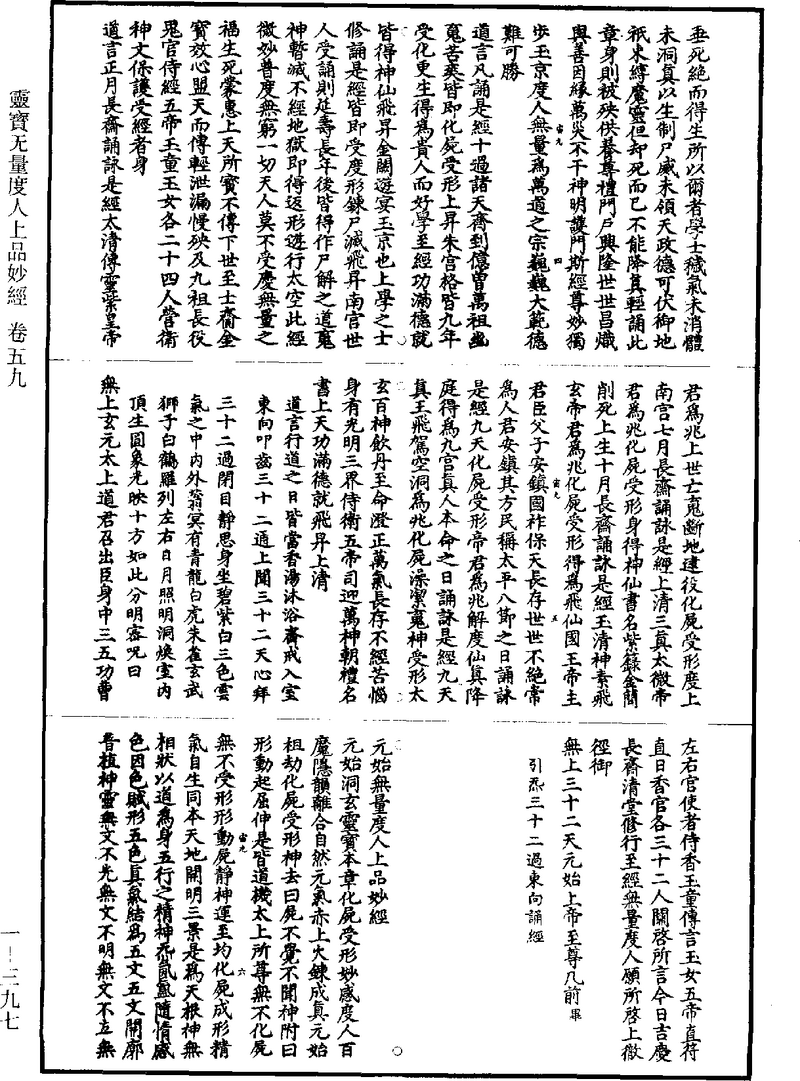 靈寶无量度人上品妙經 卷五九
一—三九七
垂死絕而得生所以爾者學士穢氣未消體
未洞真以生制尸威未領天政德可伏御地
祇束縛魔靈但却死而已不能降真輕誦此
章身則被殃供養尊禮門戶興隆世世昌熾
與善因緣萬災不干神明護門斯經尊妙獨
步玉京度人無量為萬道之宗巍巍大範德
難可勝
道言凡誦是經十過諸天齊到億曾萬祖幽
蒐苦爽皆即化屍受形上昇朱宮格皆九年
受化更生得為貴人而好學至經功滿德就
皆得神仙飛昇金闕遊宴玉京也上學之士
修誦是經皆即受度形鍊尸滅飛昇南宮世
人受誦則延壽長年後皆得作尸解之道蒐
神暫滅不經地獄即得返形遊行太空此經
微妙普度無窮一切天人莫不受慶無量之
福生死蒙惠上天所寶不傳下世至士齎金
寶效心盟天而傳輕泄漏慢殃及九祖長役
鬼官侍經五帝玉童玉女各二十四人營衛
神文保護受經者身
道言正月長齋誦詠是經太清傳靈紫皇帝
君為兆上世亡蒐斷地逮役化屍受形度上
南宮七月長齋誦詠是經上清三真太微帝
君為兆化屍受形身得神仙書名紫籙金簡
削死上生十月長齋誦詠是經玉清神素飛
玄帝君為兆化屍受形得為飛仙國王帝主
君臣父子安鎮國祚保天長存世世不絕常
為人君安鎮其方民稱太平八節之日誦詠
是經九天化屍受形帝君為兆解度仙真降
庭得為九宮真人本命之日誦詠是經九天
真王飛駕空洞為兆化屍澡潔蒐神受形太
玄百神飲丹至命澄正萬氣長存不經苦惱
身有光明三界侍衛五帝司迎萬神朝禮名
書上天功滿德就飛昇上清
道言行道之日皆當香湯沐浴齋戒入室
東向叩齒三十二通上聞三十二天心拜
三十二過閉目靜思身坐碧紫白三色雲
氣之中內外蓊冥有青龍白虎朱雀玄武
獅子白鶴羅列左右日月照明洞煥室內
頂生圓象光映十方如此分明密咒曰
無上玄元太上道君召出臣身中三五功曹
左右官使者侍香玉童傳言玉女五帝直符
直日香官各三十二人關啓所言今日吉慶
長齋清堂修行至經無量度人願所啓上徹
徑御
無上三十二天元始上帝至尊几前畢
引炁三十二過東向誦經
元始無量度人上品妙經
元始洞玄靈寶本章化屍受形妙感度人百
魔隱韻離合自然元氣亦上火鍊成真元始
祖劫化屍受形神去曰屍不覺不聞神附曰
形動起屈伸是皆道機太上所尊無不化屍
無不受形形動屍靜神運至均化屍成形精
氣自生同本天地開明三景是為天根神無
相狀以道為身五行之精神炁氤氳隨情感
色因色賦形五色真氣結為五文五文開廓
普植神靈無文不光無文不明無文不立無